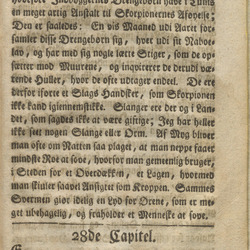 hvorfor Indbyggernes Drengebørn have i Tunis
en meget artig Anstalt til Skorpionernes Afvejelse;
Den er saaledes: En vis Maaned udi Aaret for-
samler disse Drengebørn sig, hvert udi sit Naboe-
lav, og har med sig nogle lætte Stiger, som de op-
sætter mod Muurene, og inqvirerer de derudi væ-
rende Huller, hvor de ofte udrager endeel. De ere
derfor iforte et Slags Handsker, som Skorpionen
ikke kand igiennemstikke. Slanger ere der og i Lan-
det, som sagdes ikke at være giftige; Jeg har heller
ikke seet nogen Slange eller Orm. Af Myg bliver
man ofte om Natten saa plaget, at man neppe faaer
mindste Roe at sove, hvorfor man gemeenlig bruger,
i Steden for et Overdækken, et Lagen, hvormed
man skiuler saavel Ansigtet som Kroppen. Sammes
Sværmen giør idelig en Lyd for Ørene, som er me-
get ubehagelig, og fraholder et Menneske at sove.
28de Capitel.